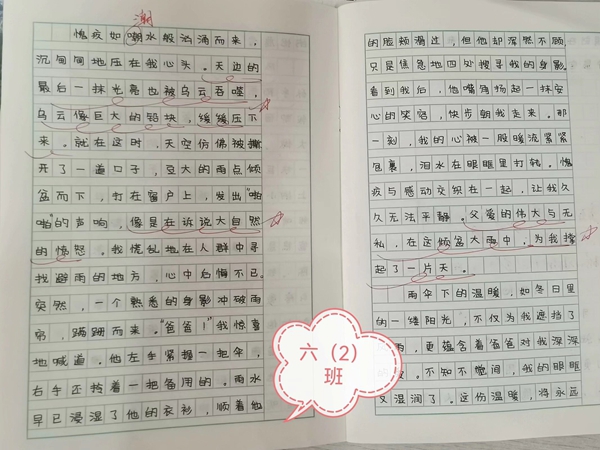 潮
愧疚如嘲水般汹涌而来，
沉甸甸地压在我心头。天边的
最后一抹光亮也被乌云吞噬，
乌云像巨大的铅块，缓缓压下
来。就在这时，天空仿佛被撕
开了一道口子，豆大的雨点倾
盆而下，打在窗户上，发出“啪
啪”的声响，像是在诉说大自然
的愤怒。我慌乱地在人群中寻
找避雨的地方，心中后悔不已。
突然，一个熟悉的身影冲破雨
帘，蹒跚而来。“爸爸！”我惊喜
地喊道。他左手紧握一把伞，
右手还拎着一把备用的。雨水
早已浸湿了他的衣衫，顺着他
的脸颊滑过，但他却浑然不顾，
只是焦急地四处搜寻我的身影。
看到我后，他嘴角扬起一抹安
心的笑容，快步朝我走来。那
一刻，我的心被一股暖流紧紧
包裹，泪水在眼眶里打转。愧
疚与感动交织在一起，让我久
久无法平静。父爱的伟大与无
私，在这倾盆大雨中，为我撑
起了一片天。
雨伞下的温暖，如冬日里
的一缕阳光，不仅为我遮挡了
雨，更蕴含着爸爸对我深深
。不知不觉间，我的眼眶
又湿润了。这份温暖，将永远
六（2）
班